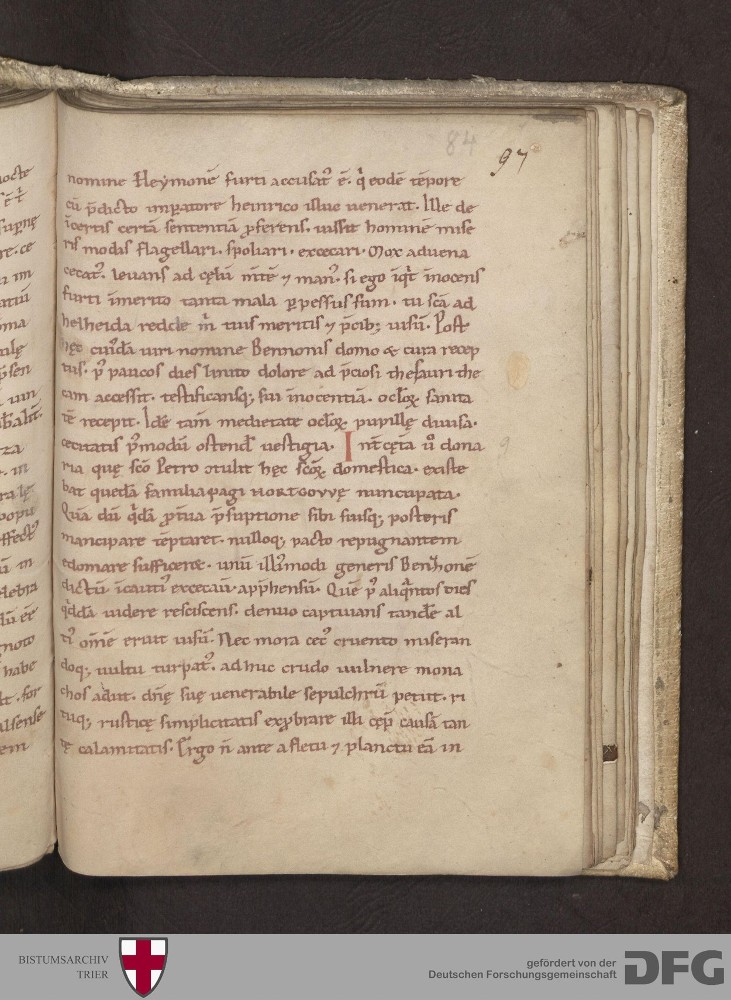 84
97
nomine Heymonē furti accusat᷒ ē. q̇ eodē tēpore
cū p̄dicto impatore heinrico illuc uenerat. Ille de
īcertis certā sententiā ꝓferens. iussit hominē mise
ris modis flagellari. spoliari. excecari. Mox aduena
cecat᷒. leuans ad cęlū m̄tē ⁊ man᷒. si ego inq̇t īnocens
furti īmerito tanta mala ꝑpessus sum. tu sc̄a ad
helheida redde m̄ tuis meritis ⁊ p̄cib; uisū. Post
hęc cuidā uiri nomine Bennonis domo & cura recep
tus. p᷒ paucos dies linito dolore ad p̄ciosi thesauri the
cam accessit. testificansq; sui īnocentiā. ocl̄oꝝ sanita
tē recepit. Idē tam̄ medietate ocl̄oꝝ pupillę diuisa.
cecitatis p̄modū ostend̄ uestigia. Int̄ cęt̄a u̇ dona
ria quę sc̄o Petro ↄtulit hęc sc̄oꝝ domestica. existe
bat quedā familia pagi NORTGOVVĘ nuncupata.
Quā dū q̇dā ꝓt̄ua p̄suptione sibi suisq; posteris
mancipare tēptaret. nulloq; pacto repugnantem
edomare sufficeret. unū illi᷒modi generis Bernhonē
dictū īcauti᷒ excecauit app̄hensū. Quē p᷒ aliq̇ntos dies
q̇ddā uidere resciscens. denuo captiuans tandē al
ti᷒ om̄ē eruit uisū. Nec mora cec᷒ cruento miseran
doq; uultu turpat᷒. adhuc crudo uulnere mona
chos adiit. dn̄ę suę uenerabile sepulchrū petiit. ri
tuq; rusticę simplicitatis exꝓbrare illi cęp̄ causā tan
tę calamitatis. Ergo n̄ ante a fletu ⁊ planctu eā in
BISTUMSARCHIV
TRIER
gefördert von der
Deutschen Forschungsgemeinschaft
DFG